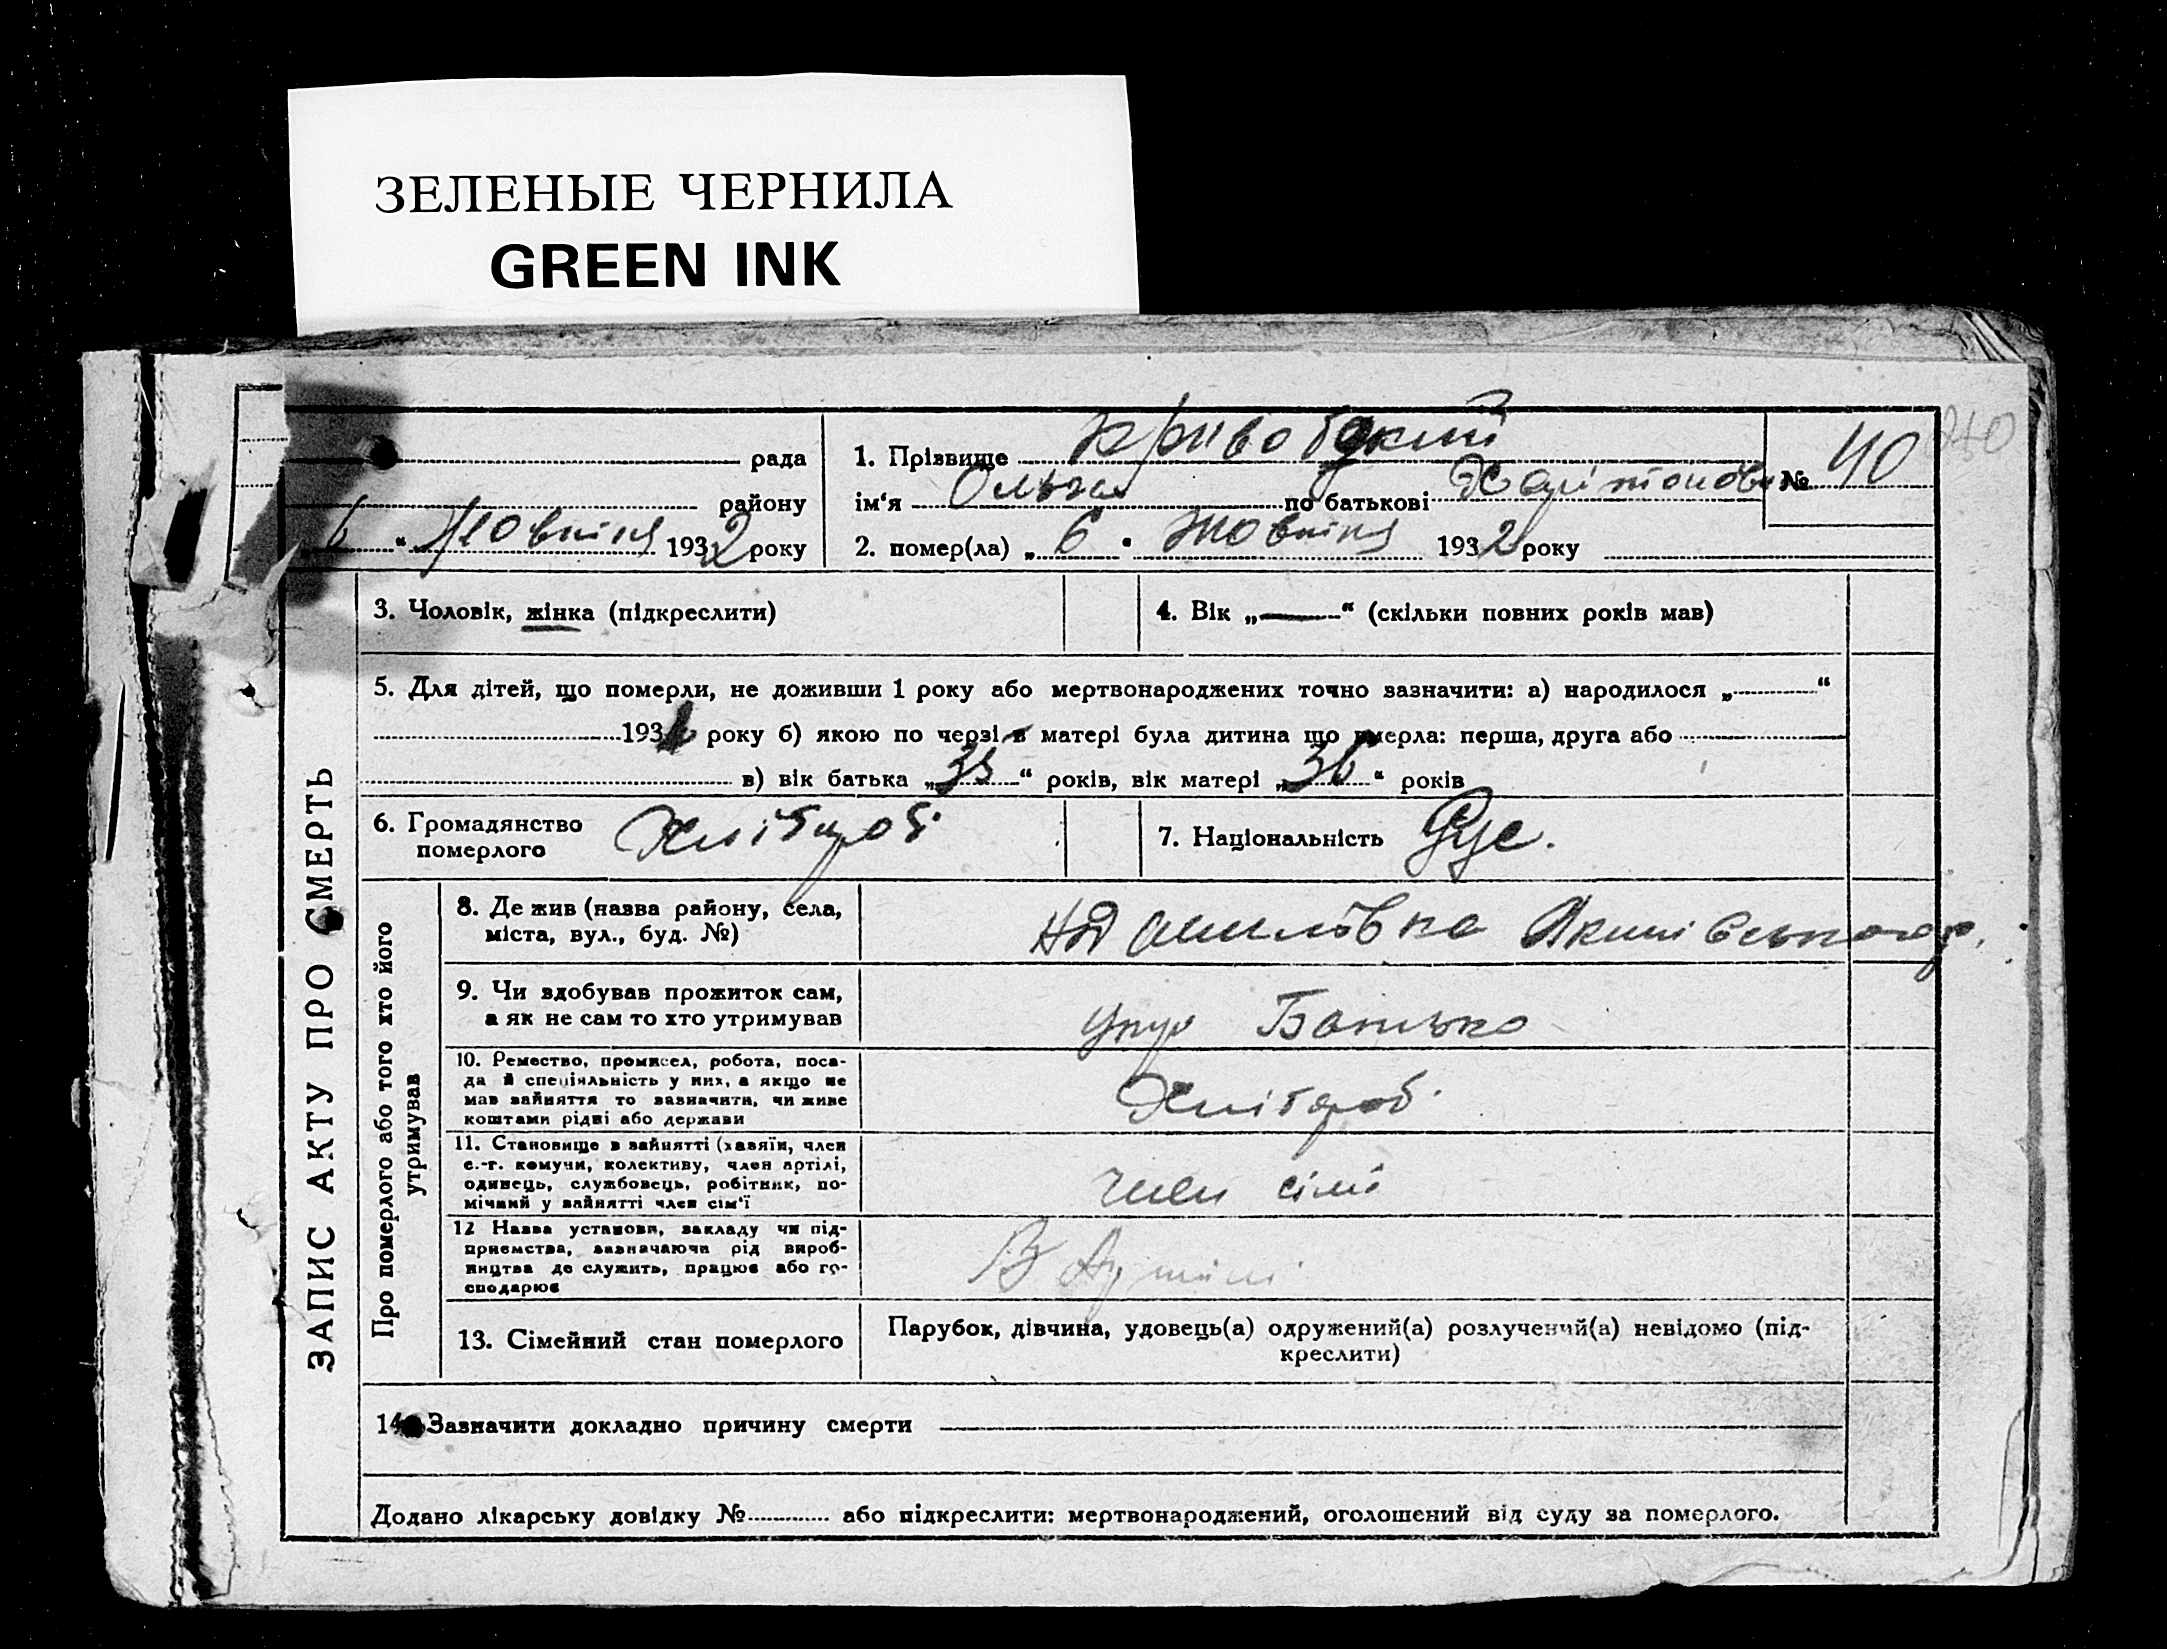 ЗЕЛЕНЫЕ ЧЕРНИЛА
GREEN INK
рада
району
6 “ Жовтня 1932 року
1. Прізвище
ім‘я Ольга по батькові № 40
2. помер(ла) „ 6 “ Жовтня 1932 року
3. Чоловік, жінка (підкреслити)
4. Вік „—“ (скільки повних років мав)
5. Для дітей, що померли, не доживши 1 року або мертвонароджених точно зазначити: а) народилося „ “
193 року б) якою по черзі в матері була дитина що вмерла: перша, друга або
в) вік батька „ “ років, вік матері „36“ років
6. Громадянство
померлого Хлібороб
7. Національність Рус.
ЗАПИС АКТУ ПРО СМЕРТЬ
Про померлого або того хто його
утримував
8. Де жив (назва району, села,
міста, вул., буд. №)
9. Чи здобував прожиток сам,
а як не сам то хто утримував Батько
10. Ремество, промисел, робота, поса-
да й спеціяльність у них, а якщо не
мав зайняття то зазначити, чи живе
коштами рідні або держави Хлібороб
11. Становище в зайнятті (хазяїн, член
с.-г. комуни, колективу, член артілі,
одинець, службовець, робітник, по-
мічний у зайнятті член сім‘ї член сімї
12 Назва установи, закладу чи під-
приємства, зазначаючи рід вироб-
ництва де служить, працює або го-
сподарює В Артілі
13. Сімейний стан померлого
Парубок, дівчина, удовець(а) одружений(а) розлучений(а) невідомо (під-
креслити)
14. Зазначити докладно причину смерти
Додано лікарську довідку № або підкреслити: мертвонароджений, оголошений від суду за померлого.